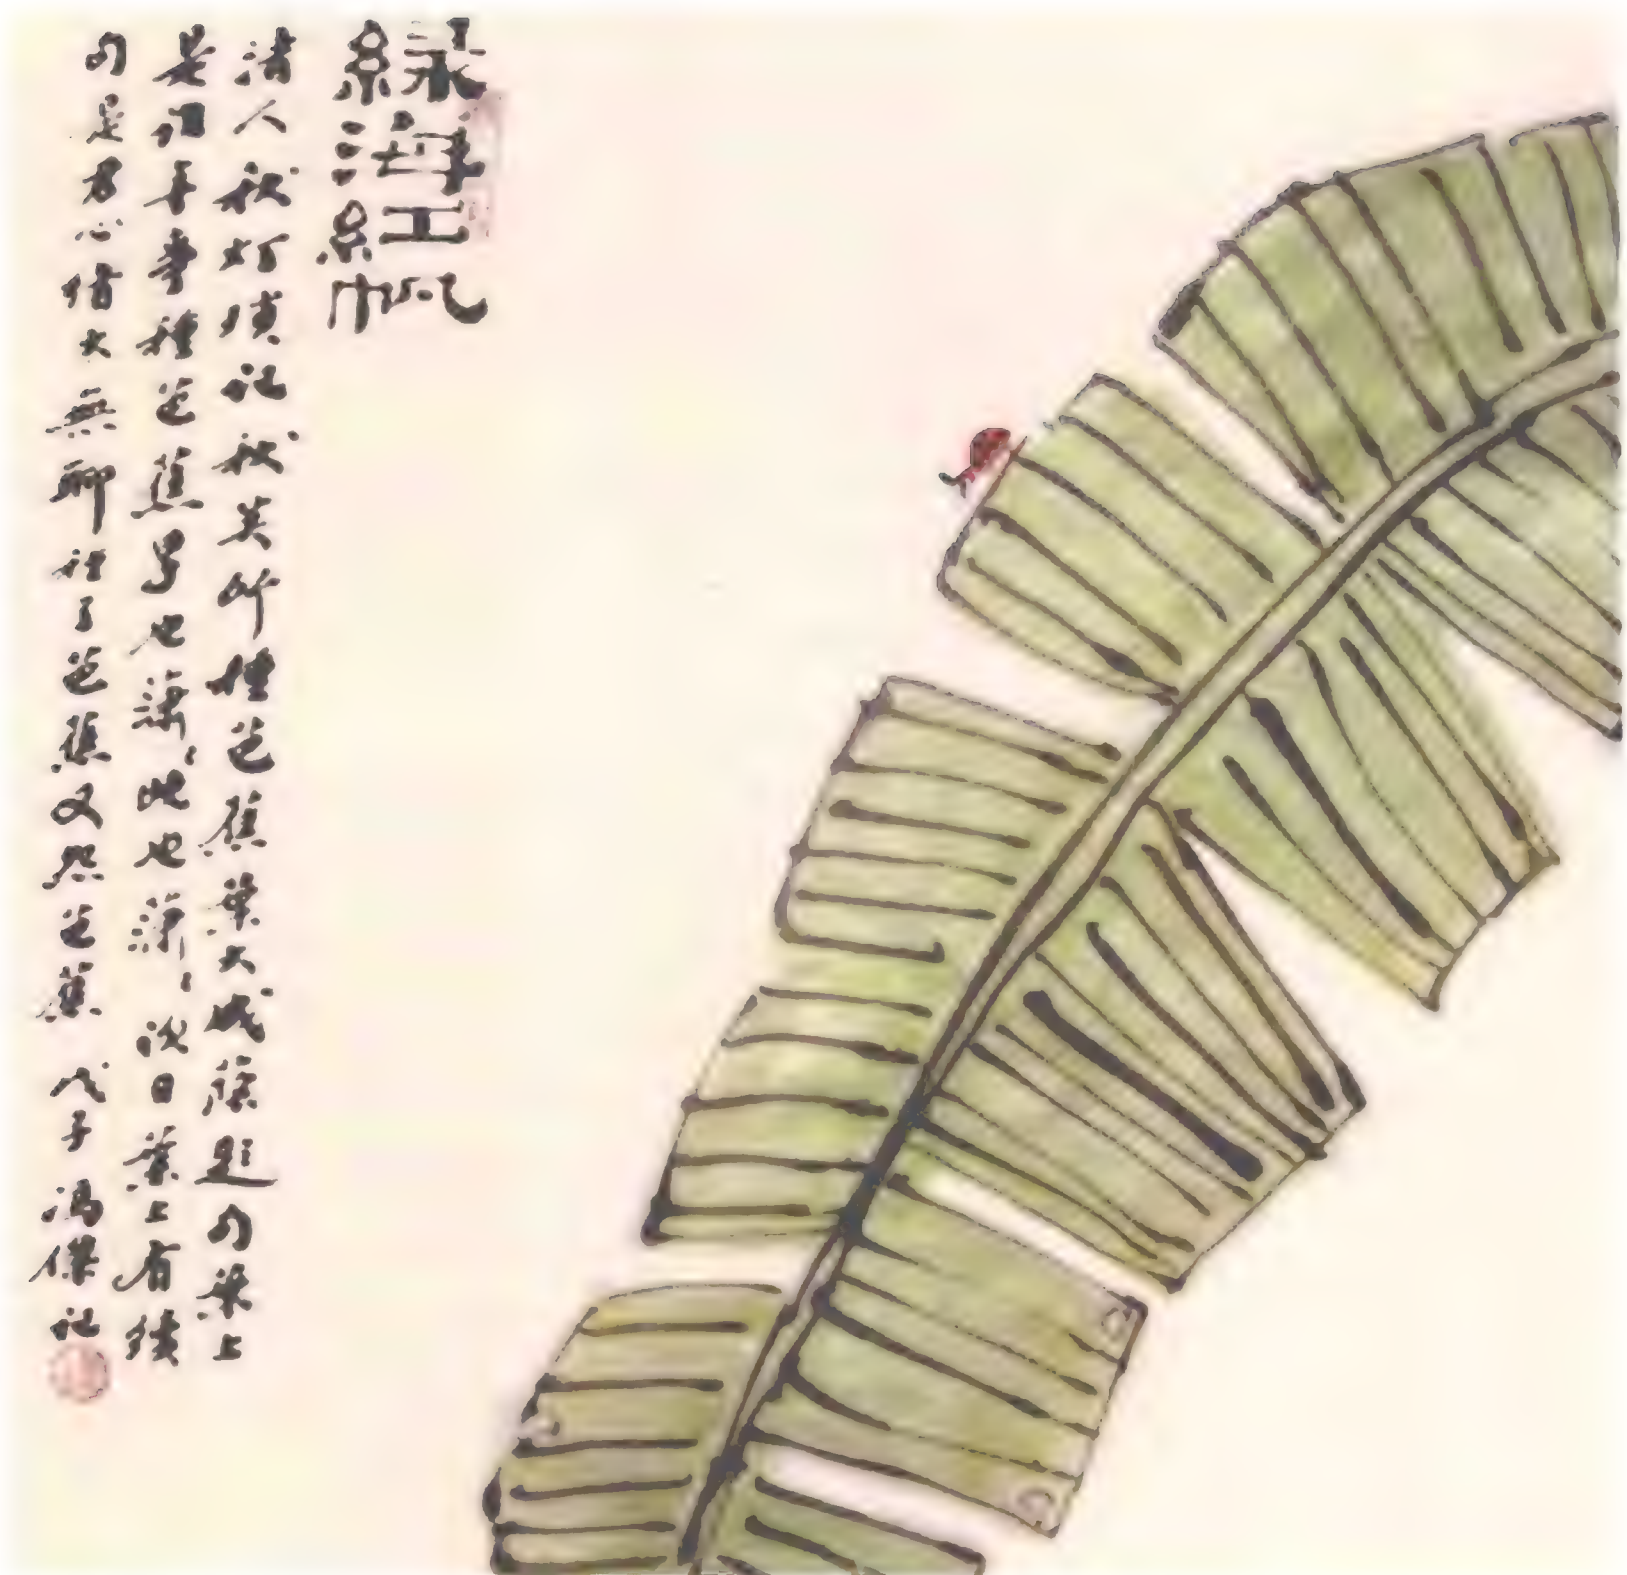 綠海紅帆
清人秋灯琐记秋芙所種芭蕉葉大成蔭题句葉上
是谁多事種芭蕉早也瀟〻晚也瀟〻次日葉上有续
句是君心情太無聊種了芭蕉又怨芭蕉 戊子冯傑记